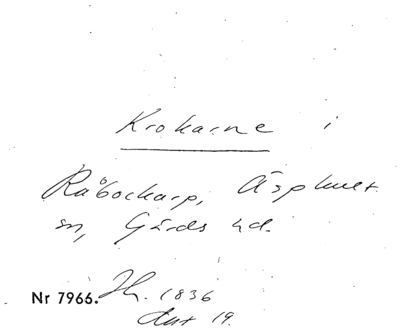 Krokarne i
Råbockarp, Äsphult
sn, Gärds hd.
Nr 7966. Jh. 1836
Akt 19.